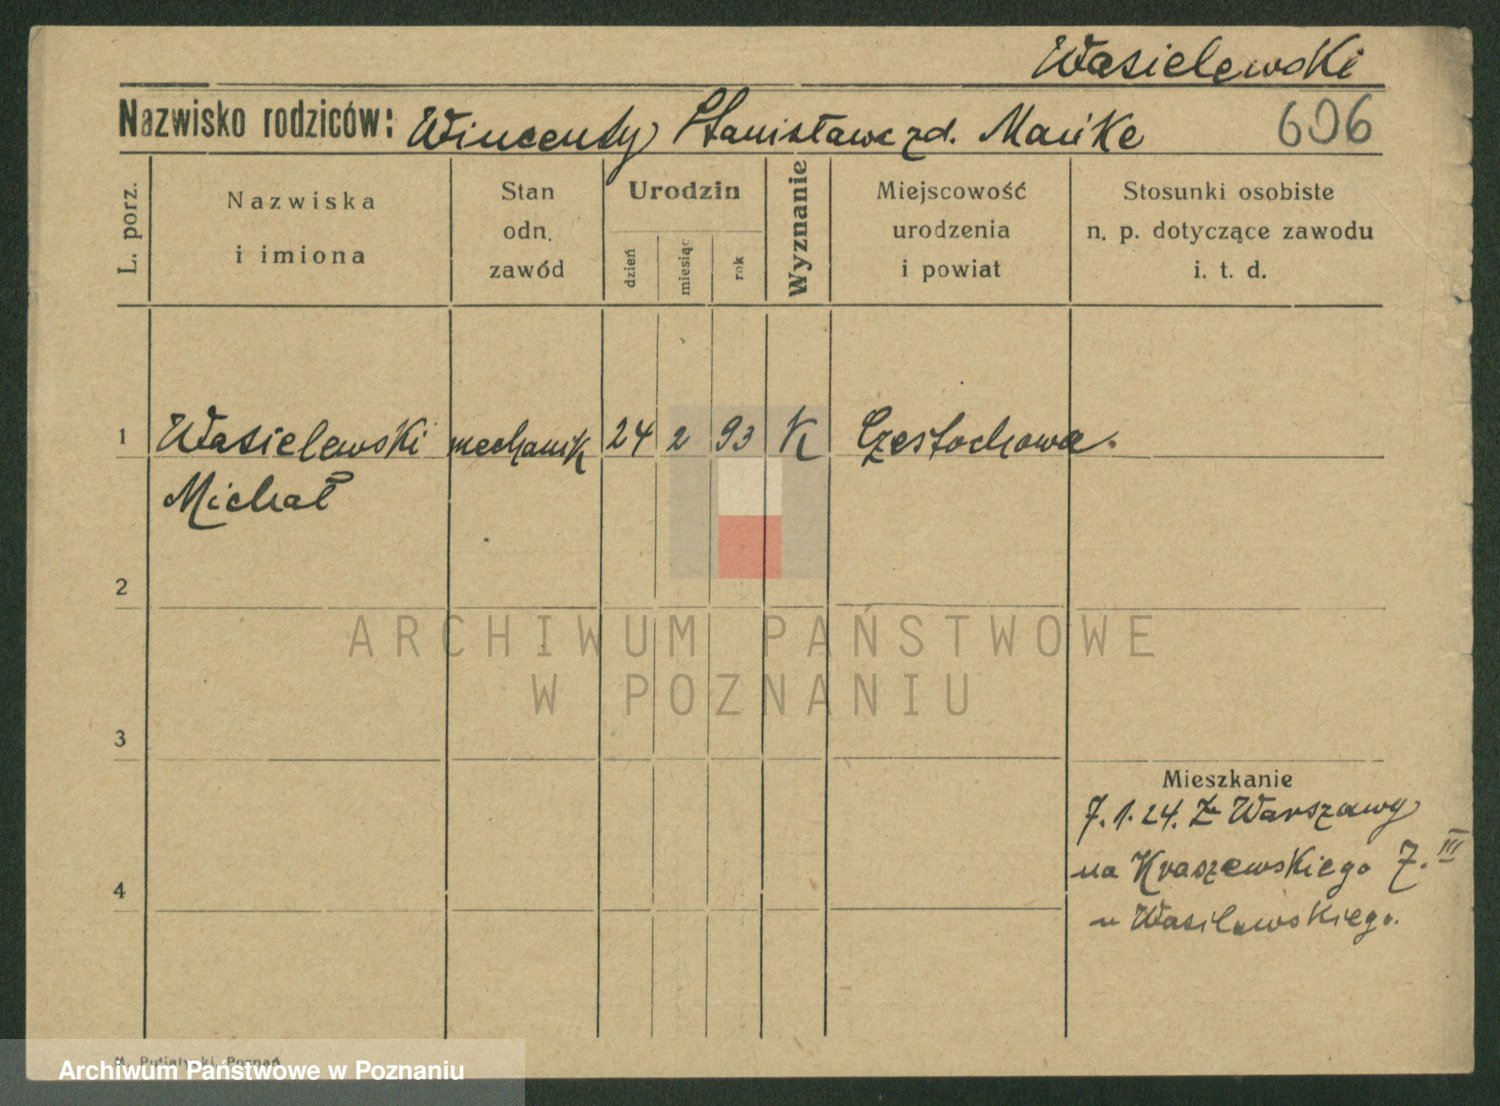 Wasielewski
Nazwisko rodziców: Wincenty Stanisława zd. Manke 606
L. porz.
Nazwiska
i imiona
Stan
odn.
zawód
Urodzin
dzień
miesiąc
rok
Wyznanie
Miejscowość
urodzenia
i powiat
Stosunki osobiste
n. p. dotyczące zawodu
i. t. d.
1 Wasielewski mechanik 24 2 93 K Częstochowa.
Michał
2
ARCHIWUM PAŃSTWOWE
W POZNANIU
3
Mieszkanie
7.1.24. Z Warszawy
na Kraszewskiego 7. III
4
u Wasilewskiego.
M. Putiatycki, Poznań
Archiwum Państwowe w Poznaniu